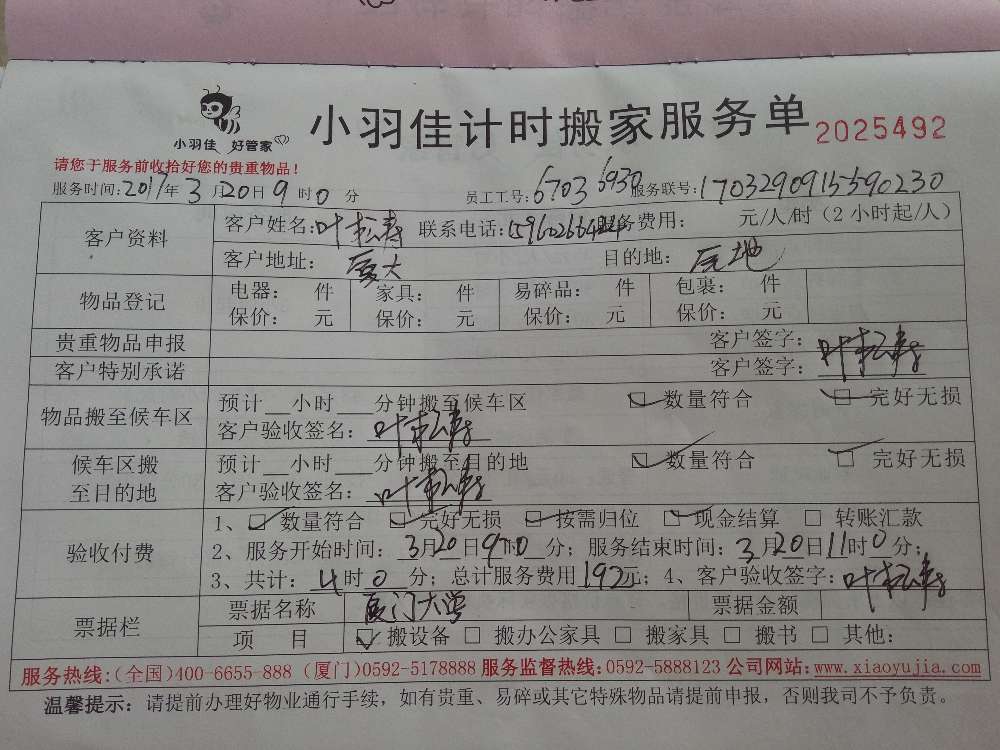 小羽佳 好管家
小羽佳计时搬家服务单 2025492
请您于服务前收拾好您的贵重物品！
服务时间:2017年3月20日9时0分 员工工号:6703 6930 服务联号:1703290915590230
客户资料 客户姓名:叶松寿 联系电话: 服务费用: 元/人/时（2小时起/人）
客户地址: 厦大 目的地:
物品登记 电器: 件 家具: 件 易碎品: 件 包裹: 件
保价: 元 保价: 元 保价: 元 保价: 元
贵重物品申报 客户签字:
客户特别承诺 客户签字: 叶松寿
物品搬至候车区 预计__小时___分钟搬至候车区 数量符合 完好无损
客户验收签名: 叶松寿
候车区搬至目的地 预计__小时___分钟搬至目的地 数量符合 完好无损
客户验收签名: 叶松寿
验收付费 1、数量符合 完好无损 按需归位 现金结算 转账汇款
2、服务开始时间: 3月20日9时0分; 服务结束时间: 3月20日11时0分;
3、共计: 4时0分; 总计服务费用192元; 4、客户验收签字: 叶松寿
票据栏 票据名称 厦门大学 票据金额
项目 搬设备 搬办公家具 搬家具 搬书 其他:
服务热线:(全国)400-6655-888 (厦门)0592-5178888 服务监督热线:0592-5888123 公司网站:www.xiaoyujia.com
温馨提示: 请提前办理好物业通行手续，如有贵重、易碎或其它特殊物品请提前申报，否则我司不予负责。